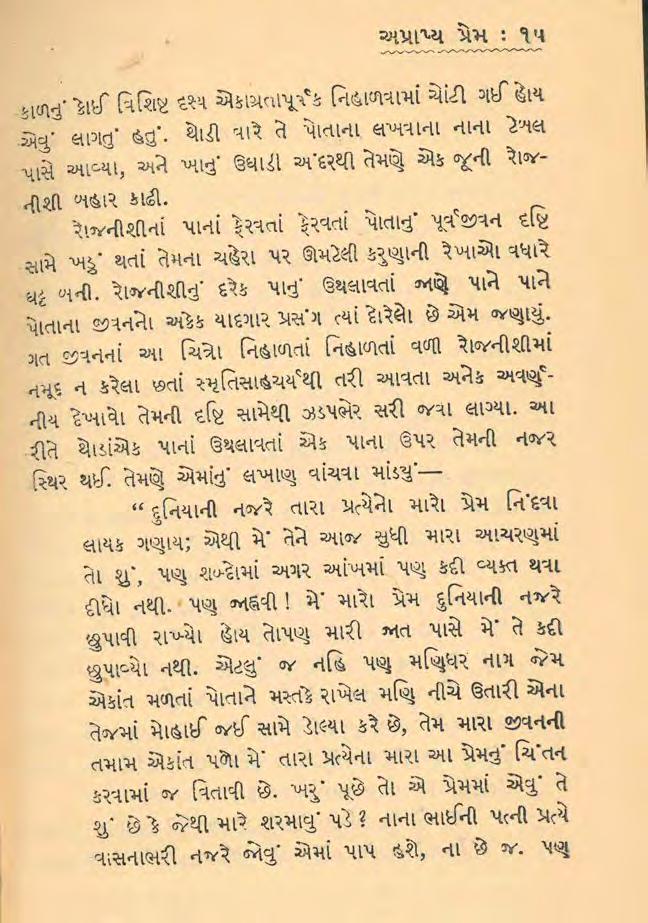 અપ્રાપ્ય પ્રેમ : ૧૫
કાળનું કોઈ વિશિષ્ટ દૃશ્ય એકાગ્રતાપૂર્વક નિહાળવામાં ચોંટી ગઈ હોય
એવું લાગતું હતું. થોડી વારે તે પોતાના લખવાના નાના ટેબલ
પાસે આવ્યા, અને ખાનું ઉઘાડી અંદરથી તેમણે એક જૂની રોજ-
નીશી બહાર કાઢી.
રોજનીશીનાં પાનાં ફેરવતાં ફેરવતાં પોતાનું પૂર્વજીવન દૃષ્ટિ
સામે ખડું થતાં તેમના ચહેરા પર ઊમટેલી કરુણાની રેખાઓ વધારે
ઘટ્ટ બની. રોજનીશીનું દરેક પાનું ઉથલાવતાં જાણે પાને પાને
પોતાના જીવનનો અકેક યાદગાર પ્રસંગ ત્યાં દોરેલો છે એમ જણાયું.
ગત જીવનનાં આ ચિત્રો નિહાળતાં નિહાળતાં વળી રોજનીશીમાં
નમૂદ ન કરેલા છતાં સ્મૃતિસાહચર્યથી તરી આવતા અનેક અવર્ણ-
નીય દેખાવો તેમની દૃષ્ટિ સામેથી ઝડપભેર સરી જવા લાગ્યા. આ
રીતે થોડાંએક પાનાં ઉથલાવતાં એક પાના ઉપર તેમની નજર
સ્થિર થઈ. તેમણે એમાંનું લખાણ વાંચવા માંડ્યું—
“ દુનિયાની નજરે તારા પ્રત્યેનો મારો પ્રેમ નિંદવા
લાયક ગણાય; એથી મેં તેને આજ સુધી મારા આચરણમાં
તો શું, પણ શબ્દોમાં અગર આંખમાં પણ કદી વ્યક્ત થવા
દીધો નથી. પણ જાહ્નવી! મેં મારો પ્રેમ દુનિયાની નજરે
છુપાવી રાખ્યો હોય તોપણ મારી જાત પાસે મેં તે કદી
છુપાવ્યો નથી. એટલું જ નહિ પણ મણિધર નાગ જેમ
એકાંત મળતાં પોતાને મસ્તકે રાખેલ મણિ નીચે ઉતારી એના
તેજમાં મોહાઈ જઈ સામે ડોલ્યા કરે છે, તેમ મારા જીવનની
તમામ એકાંત પળો મેં તારા પ્રત્યેના મારા આ પ્રેમનું ચિંતન
કરવામાં જ વિતાવી છે. ખરું પૂછે તો એ પ્રેમમાં એવું તે
શું છે કે જેથી મારે શરમાવું પડે? નાના ભાઈની પત્ની પ્રત્યે
વાસનાભરી નજરે જોવું એમાં પાપ હશે, ના છે જ. પણ